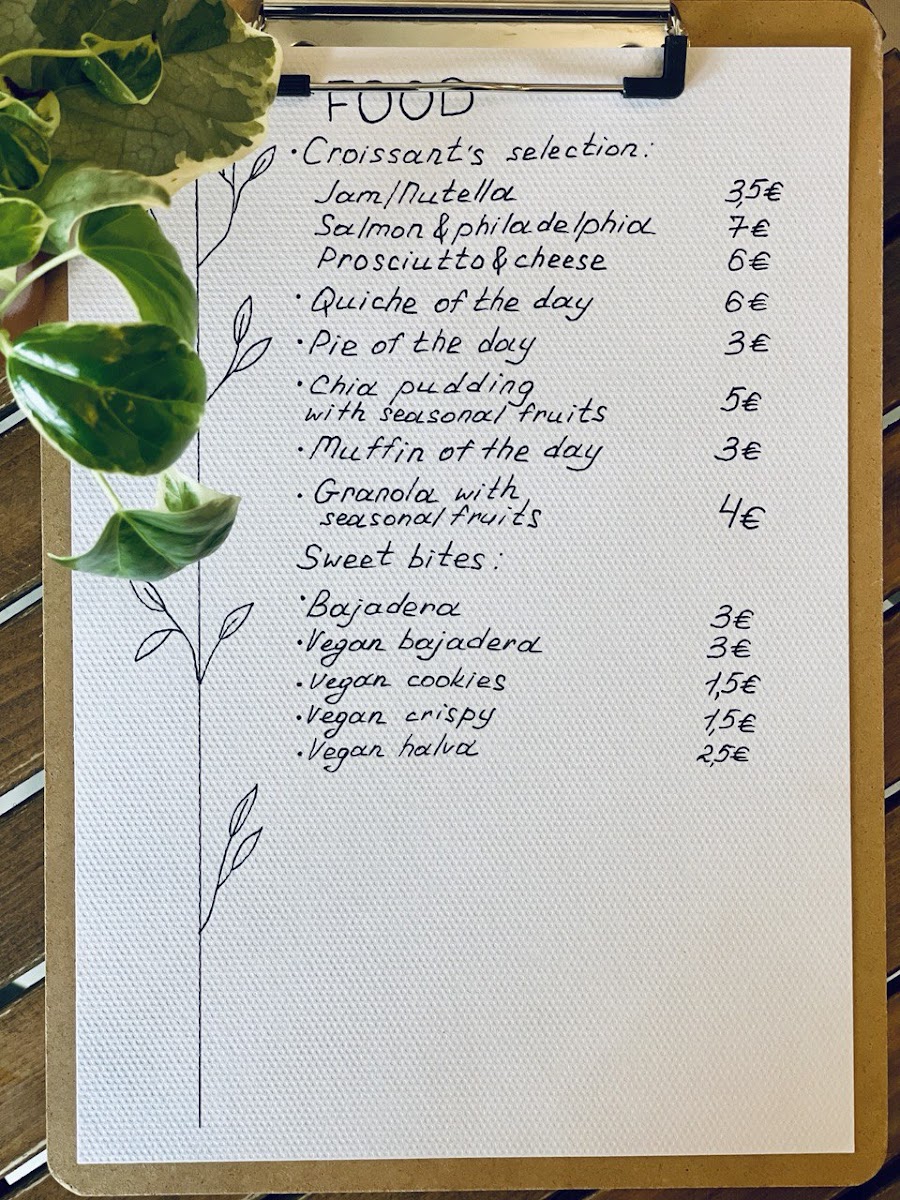 FOOD
·Croissant's selection:
Jam/Nutella 3,5€
Salmon & philadelphia 7€
Prosciutto & cheese 6€
·Quiche of the day 6€
·Pie of the day 3€
·Chia pudding
with seasonal fruits 5€
·Muffin of the day 3€
·Granola with
seasonal fruits 4€
Sweet bites:
·Bajadera 3€
·Vegan bajadera 3€
·Vegan cookies 1,5€
·Vegan crispy 1,5€
·Vegan halva 2,5€